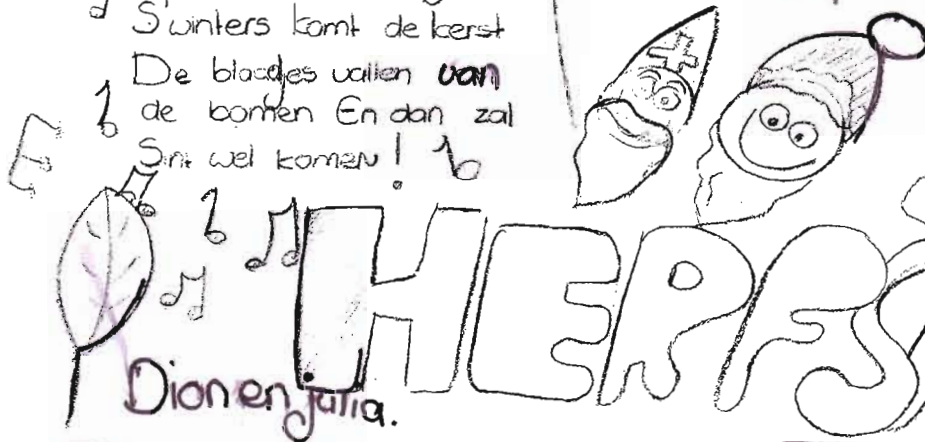 S'winters komt de kerst
De blaadjes vallen van
de bomen En dan zal
Sint wel komen!
HERFS
Dion en julia.